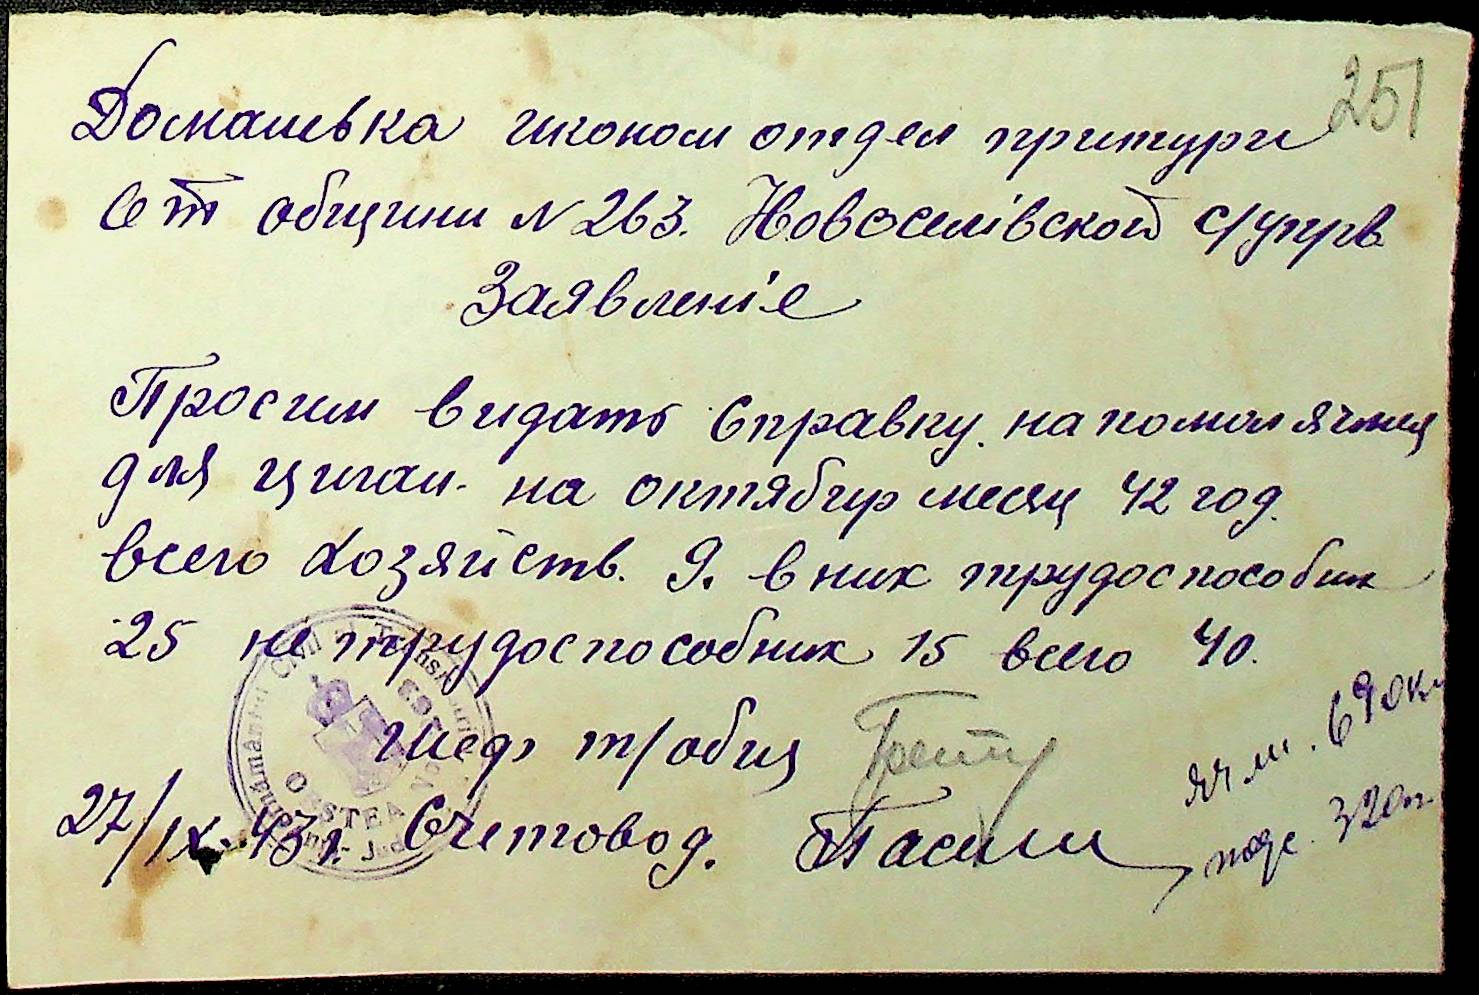 251
Домашевка иконом отдел притури
От общини № 263. Новоселівской с/упрв.
Заявленіе
Просим видать Справку. на помол ячмня
для циган. на октябір месяц 42 год.
всего хозяйств. 9. в них трудоспособних
25 не трудоспособних 15 всего 40.
шеф т/общ
27/IX-43 г. Счетовод.
ячм. 690кг
подс. 320
OBSTEA No 263